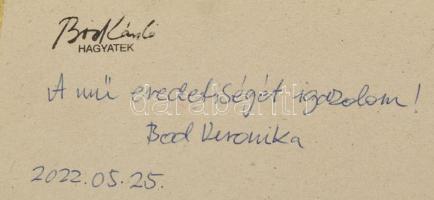 Bod László
HAGYATÉK
A mű eredetiségét igazolom!
darabanth
Bod Veronika
2022.05.25.